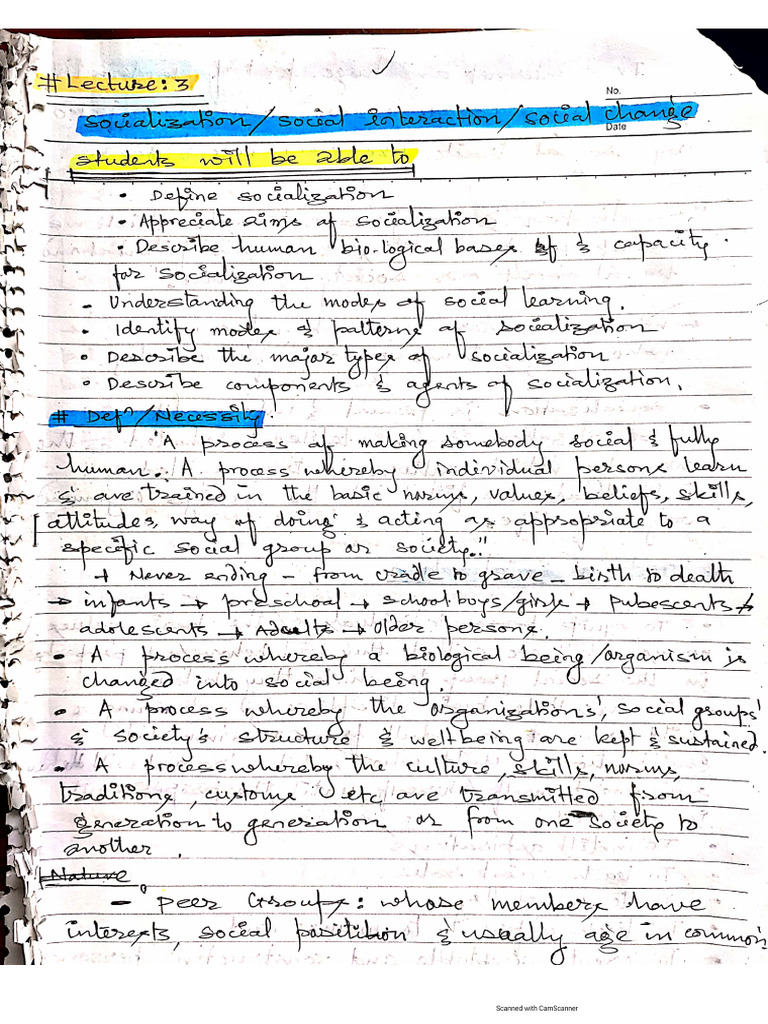 # Lecture: 3
No.
Socialization/social interaction/social change
Date
students will be able to
• Define socialization
• Appreciate aims of socialization
• Describe human biological bases of & capacity
for socialization
- Understanding the modes of social learning.
• Identify modes & patterns of socialization
• Describe the major types of socialization
• Describe components & agents of socialization.
# Defn/Necessity:
"A process of making somebody social & fully
human. A process whereby individual persons learn
& are trained in the basic norms, values, beliefs, skills,
attitudes, way of doing & acting as appropriate to a
specific social group or society."
→ Never ending - from cradle to grave - birth to death
→ infants → preschool → school boys/girls → pubescents →
adolescents → Adults → older persons.
• A process whereby a biological being/organism is
changed into social being.
• A process whereby the organizations', social groups'
& society's structure & wellbeing are kept & sustained.
• A process whereby the culture, skills, norms,
traditions, customs etc are transmitted from
generation to generation or from one society to
another.
Nature
- Peer Groups: whose members have
interests, social position & usually age in common
Scanned with CamScanner